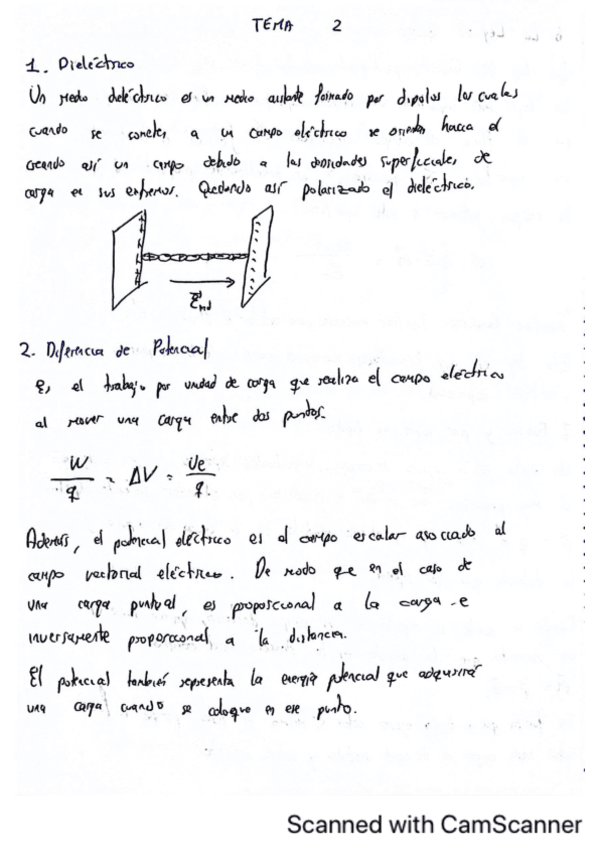 TEMA 2
1. Dieléctrico
Un medio dieléctrico es un medio aislante formado por dipolos los cuales
cuando se someten a un campo eléctrico se orientan hacia él
creando así un campo debido a las densidades superficiales de
carga en sus extremos. Quedando así polarizado el dieléctrico.
2. Diferencia de Potencial
Es el trabajo por unidad de carga que realiza el campo eléctrico
al mover una carga entre dos puntos.
W/q = ΔV = Ue/q
Además, el potencial eléctrico es el campo escalar asociado al
campo vectorial eléctrico. De modo que en el caso de
una carga puntual, es proporcional a la carga e
inversamente proporcional a la distancia.
El potencial también representa la energía potencial que adquirirá
una carga cuando se coloque en ese punto.
Scanned with CamScanner